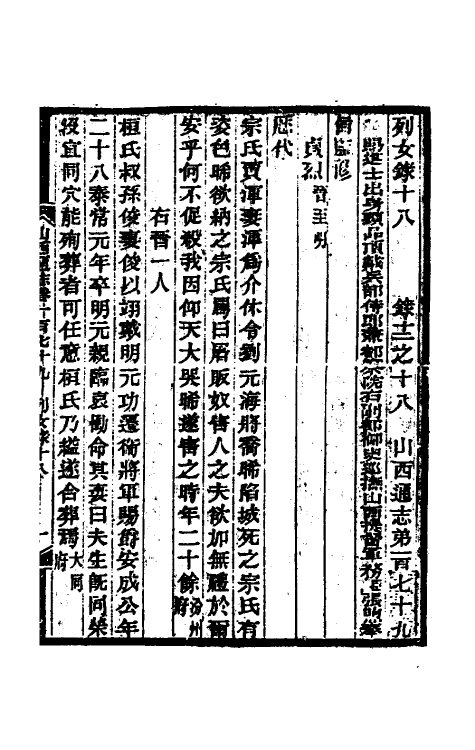 列女錄十八 錄十二之十八 山西通志第一百七十九
賜進士出身頭品頂戴兵部侍郎兼都察院右副都御史巡撫山西提督軍務
監修
貞烈 晉至明
歷代
宗氏賈渾妻渾爲介休令劉元海將喬晞陷城死之宗氏有
姿色晞欲納之宗氏罵曰屠販奴害人之夫欲加無禮於爾
安乎何不促殺我因仰天大哭晞遂害之時年二十餘汾州府
右晉一人
桓氏叔孫俊妻俊以翊戴明元功遷衛將軍賜爵安成公年
二十八泰常元年卒明元親臨哀慟命其妻曰夫生既同榮
沒宜同穴能殉葬者可任意桓氏乃縊遂合葬焉大同府
山西通志卷一百七十九 列女錄十八 一